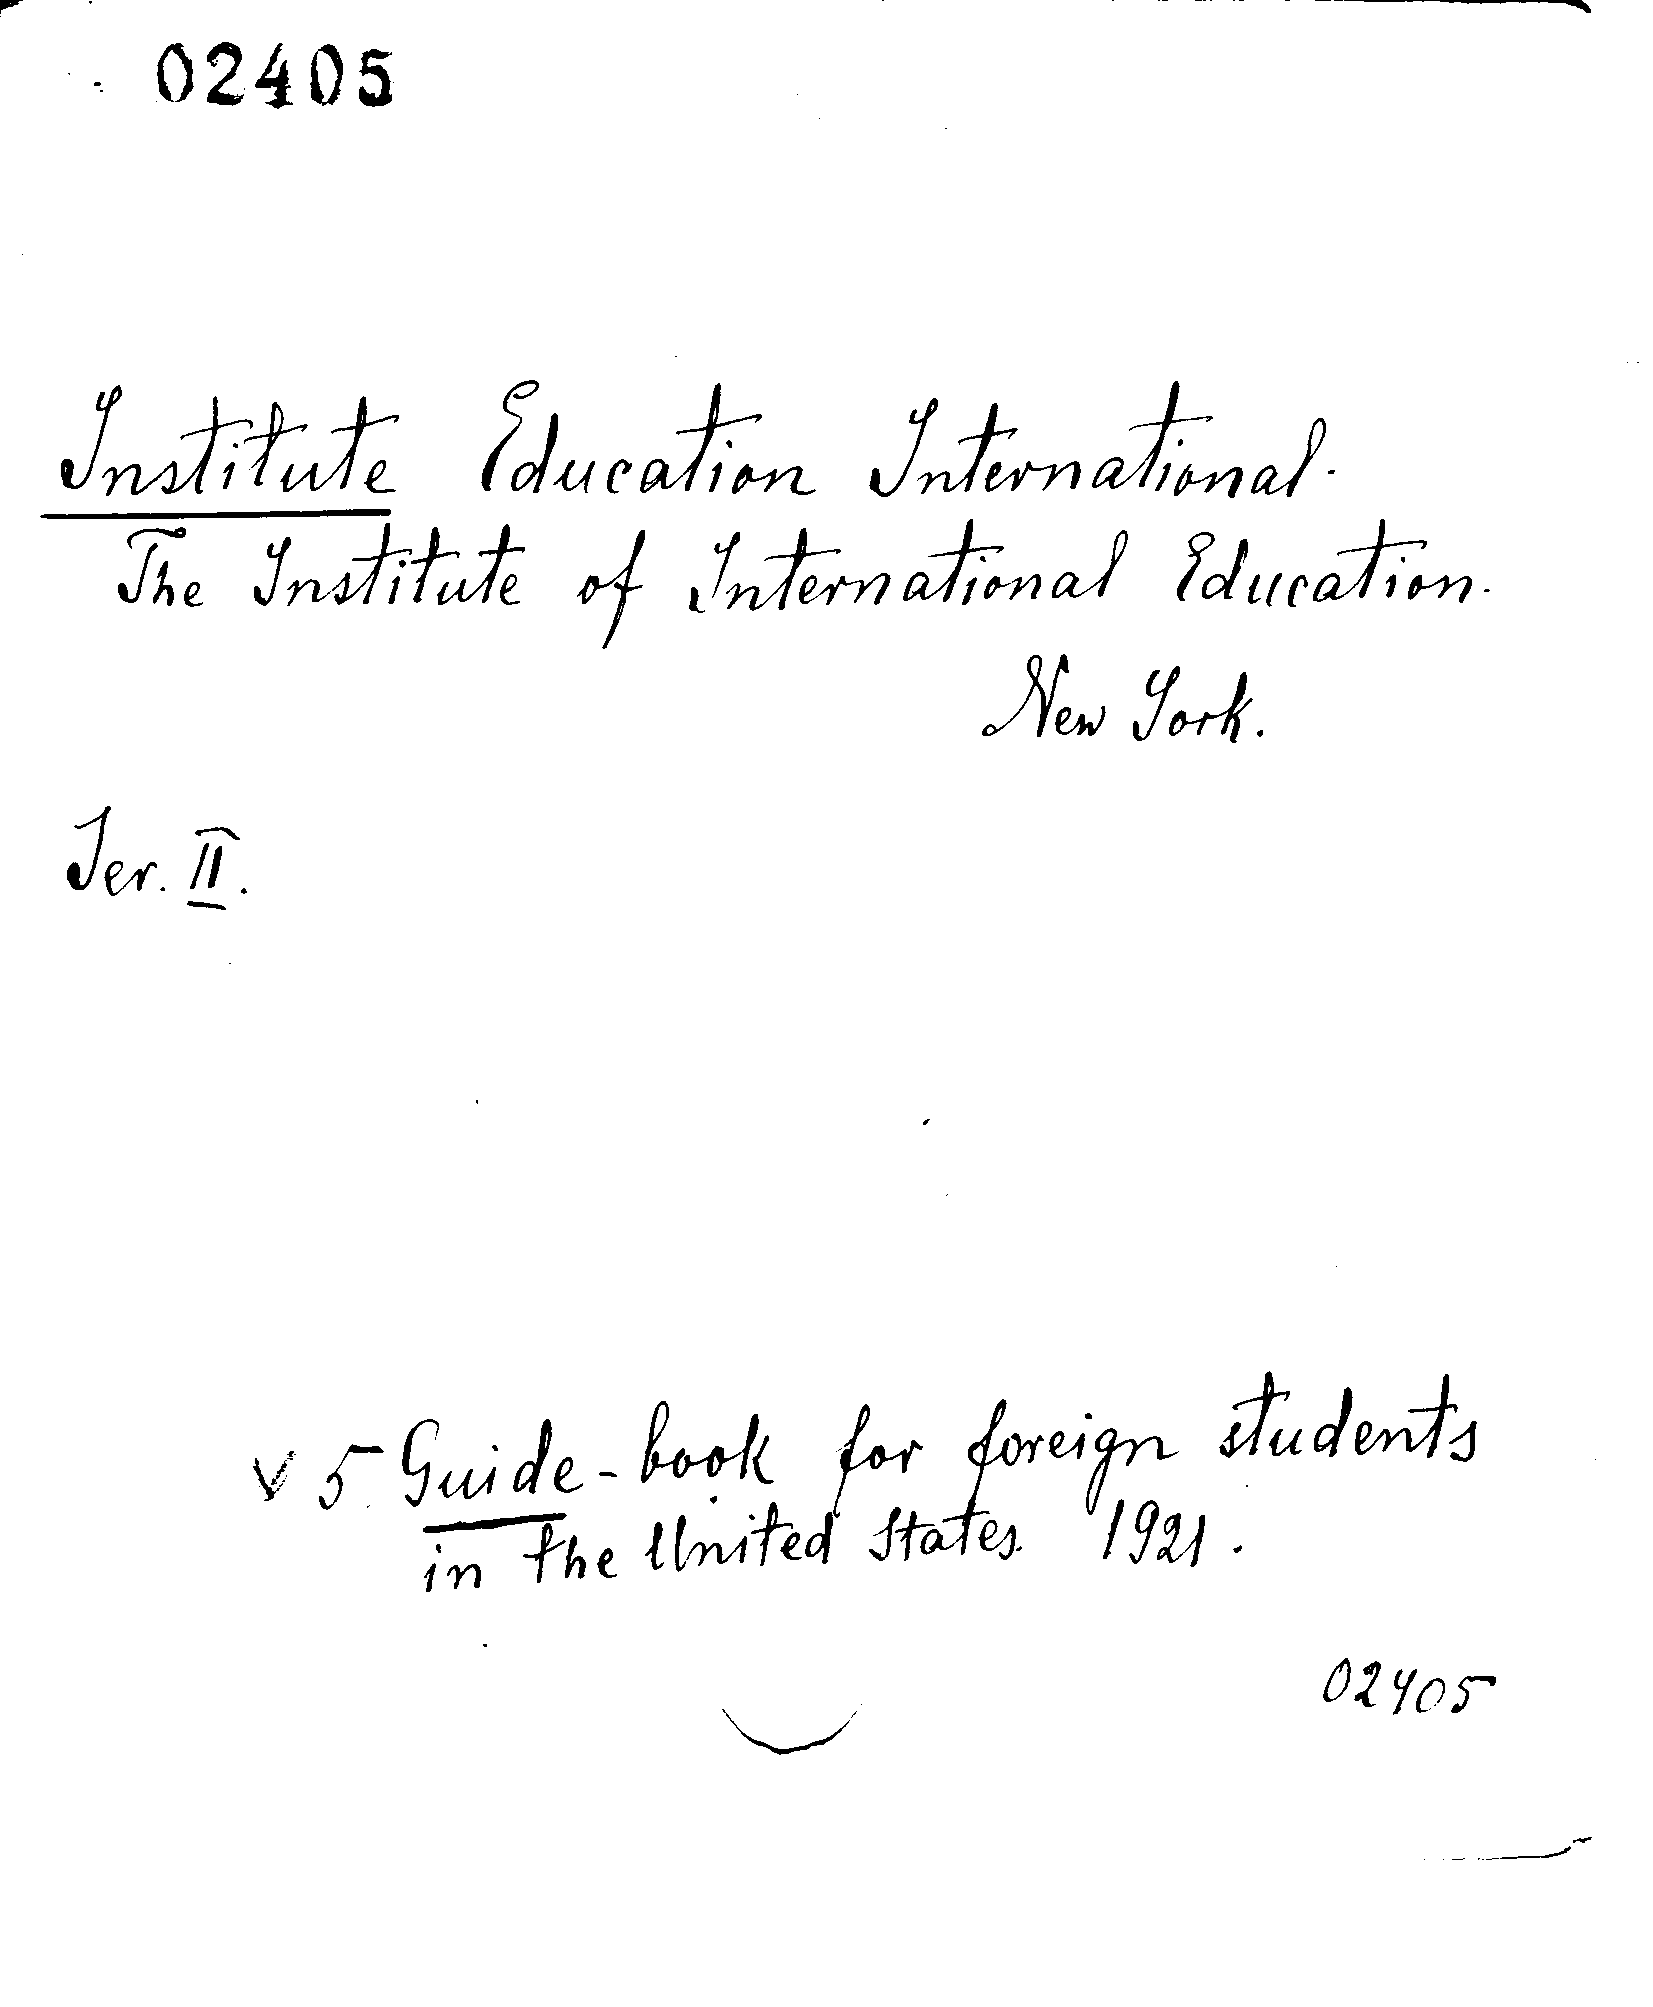 02405
Institute Education International.
The Institute of International Education.
New York.
Ser. II.
v 5 Guide-book for foreign students
in the United States 1921.
02405